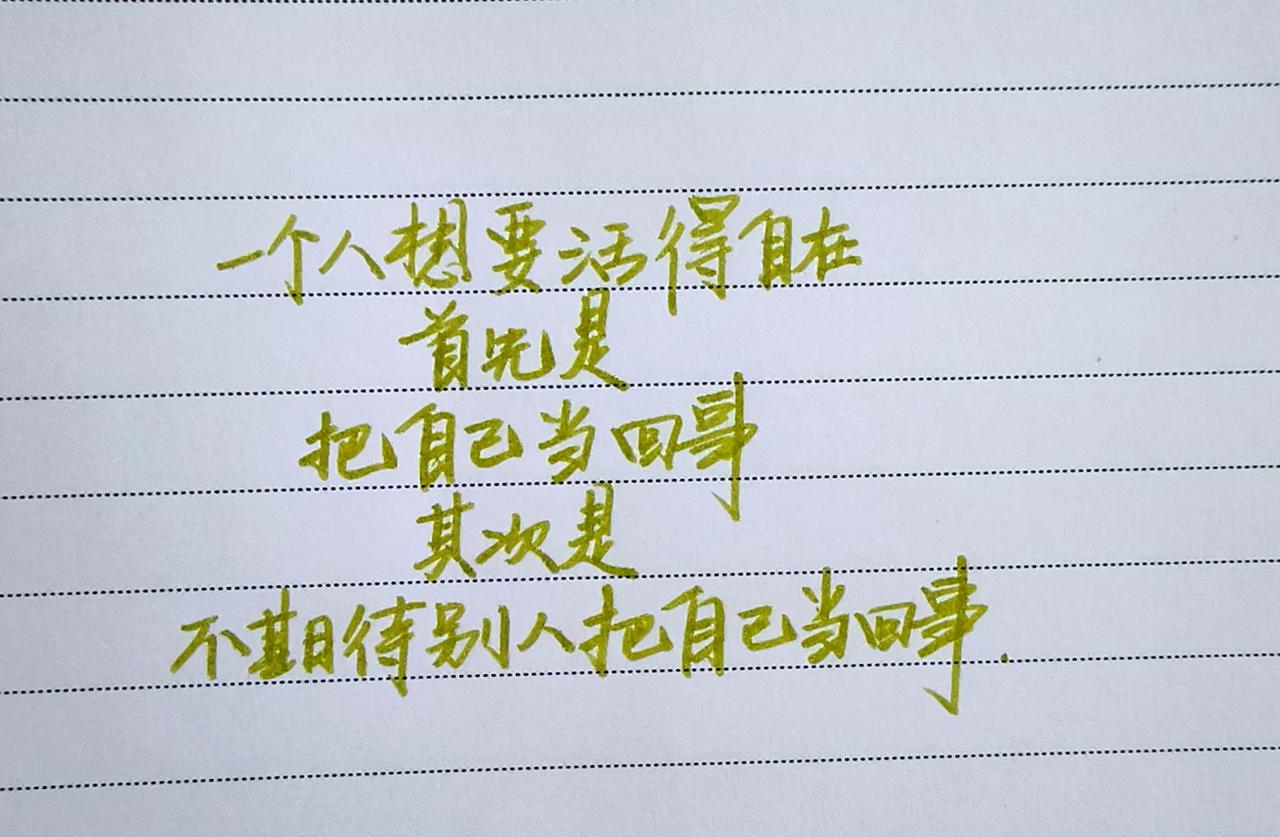 一个人想要活得自在
首先是
把自己当回事
其次是
不期待别人把自己当回事.